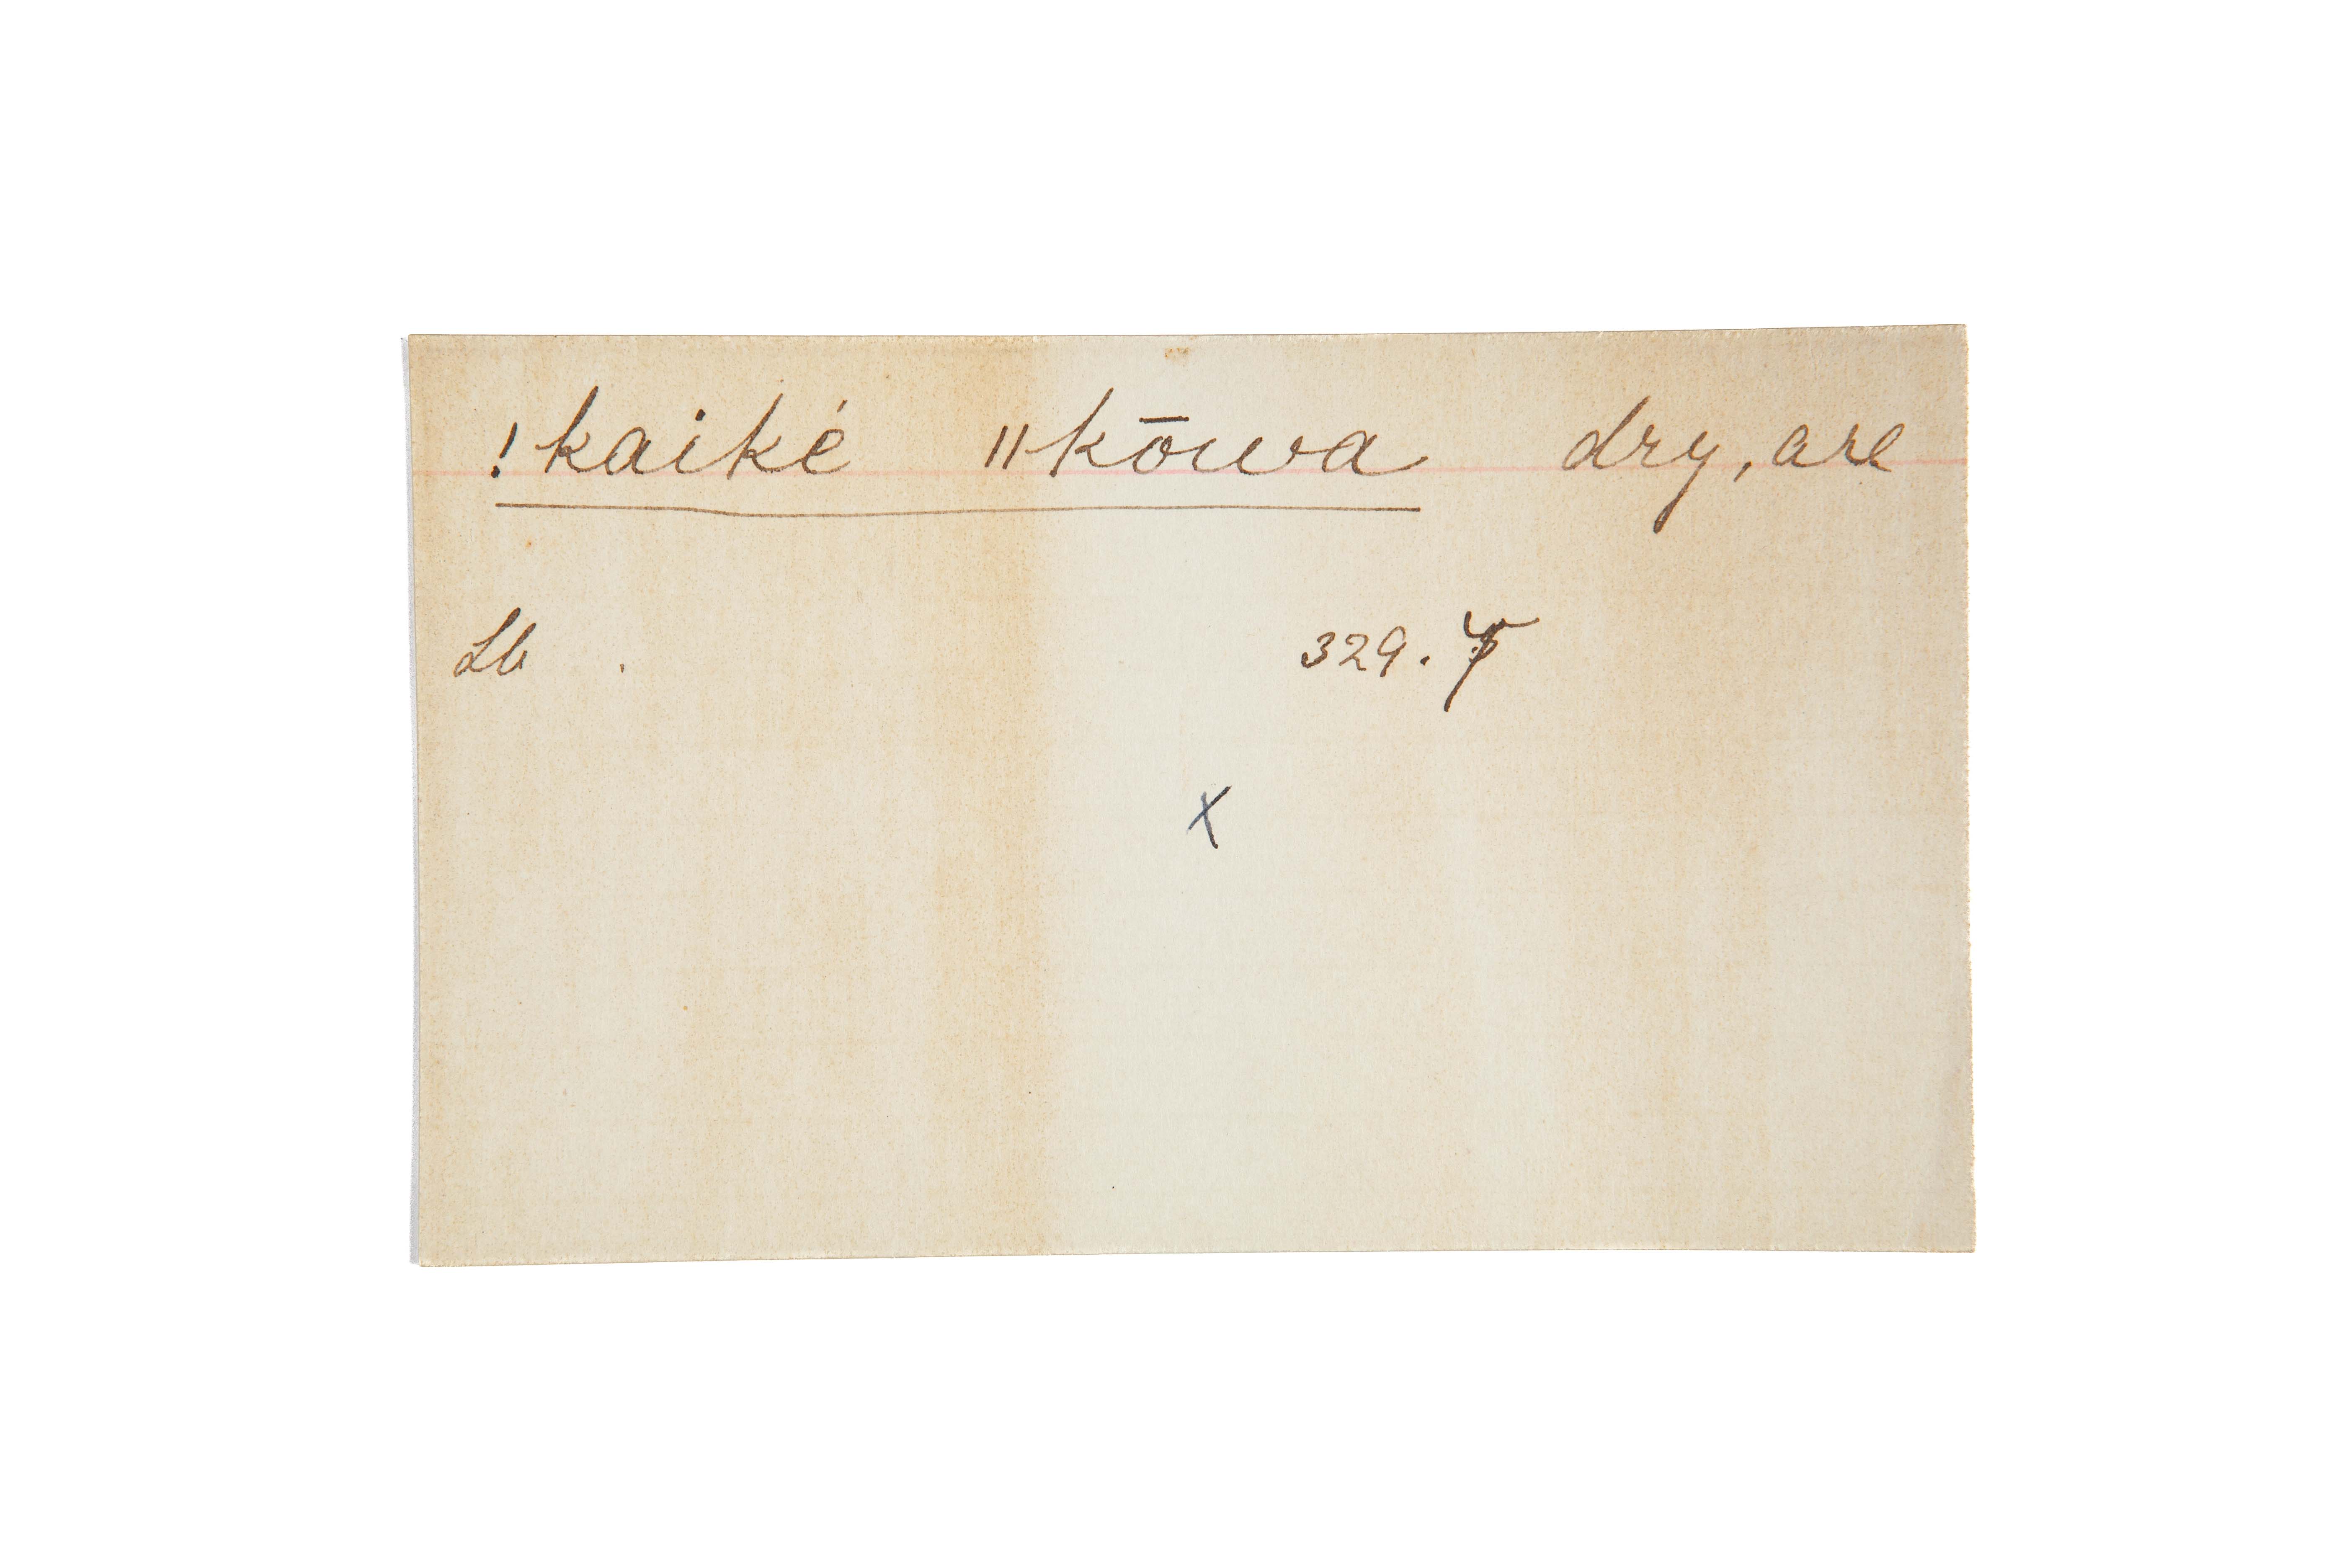 !kaiké ǁkōwa dry, are
Lb 329.
X